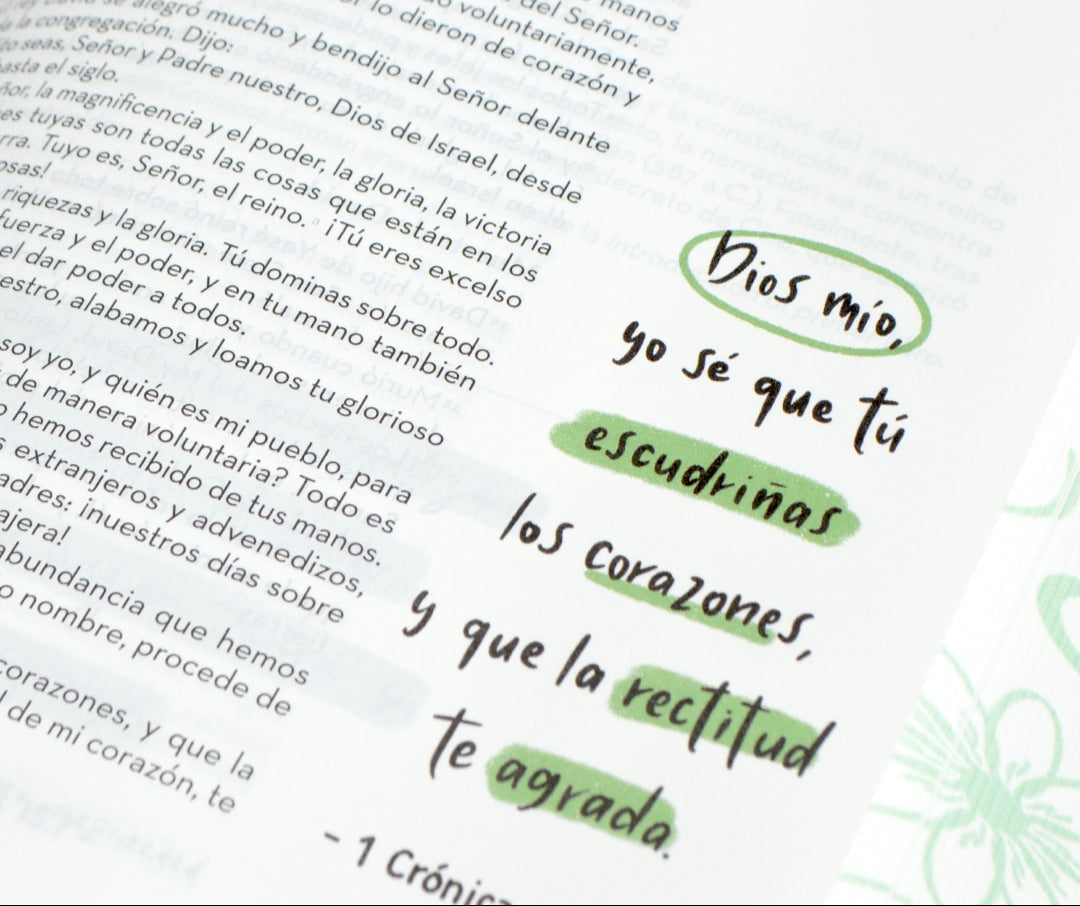 manos
del Señor.
voluntariamente,
lo dieron de corazón y
alegró mucho y bendijo al Señor delante
la congregación. Dijo:
seas, Señor y Padre nuestro, Dios de Israel, desde
hasta el siglo.
la magnificencia y el poder, la gloria, la victoria
tuyas son todas las cosas que están en los
Tuyo es, Señor, el reino. ¡Tú eres excelso
riquezas y la gloria. Tú dominas sobre todo.
fuerza y el poder, y en tu mano también
el dar poder a todos.
alabamos y loamos tu glorioso
soy yo, y quién es mi pueblo, para
de manera voluntaria? Todo es
hemos recibido de tus manos.
extranjeros y advenedizos,
¡nuestros días sobre
abundancia que hemos
nombre, procede de
corazones, y que la
de mi corazón, te
Dios mío,
yo sé que tú
escudriñas
los corazones,
y que la rectitud
te agrada.
- 1 Crónic